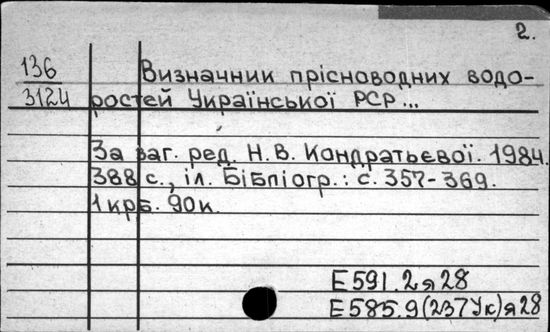 2.
136 Визначник прісноводних водо-
3124 ростей Української РСР...
За заг. ред. Н. В. Кондратьєвої. 1984.
388 с., іл. Бібліогр.: с. 357-369.
1 крб. 90 к.
Е591.2я28
Е585.9(237Ук)я28